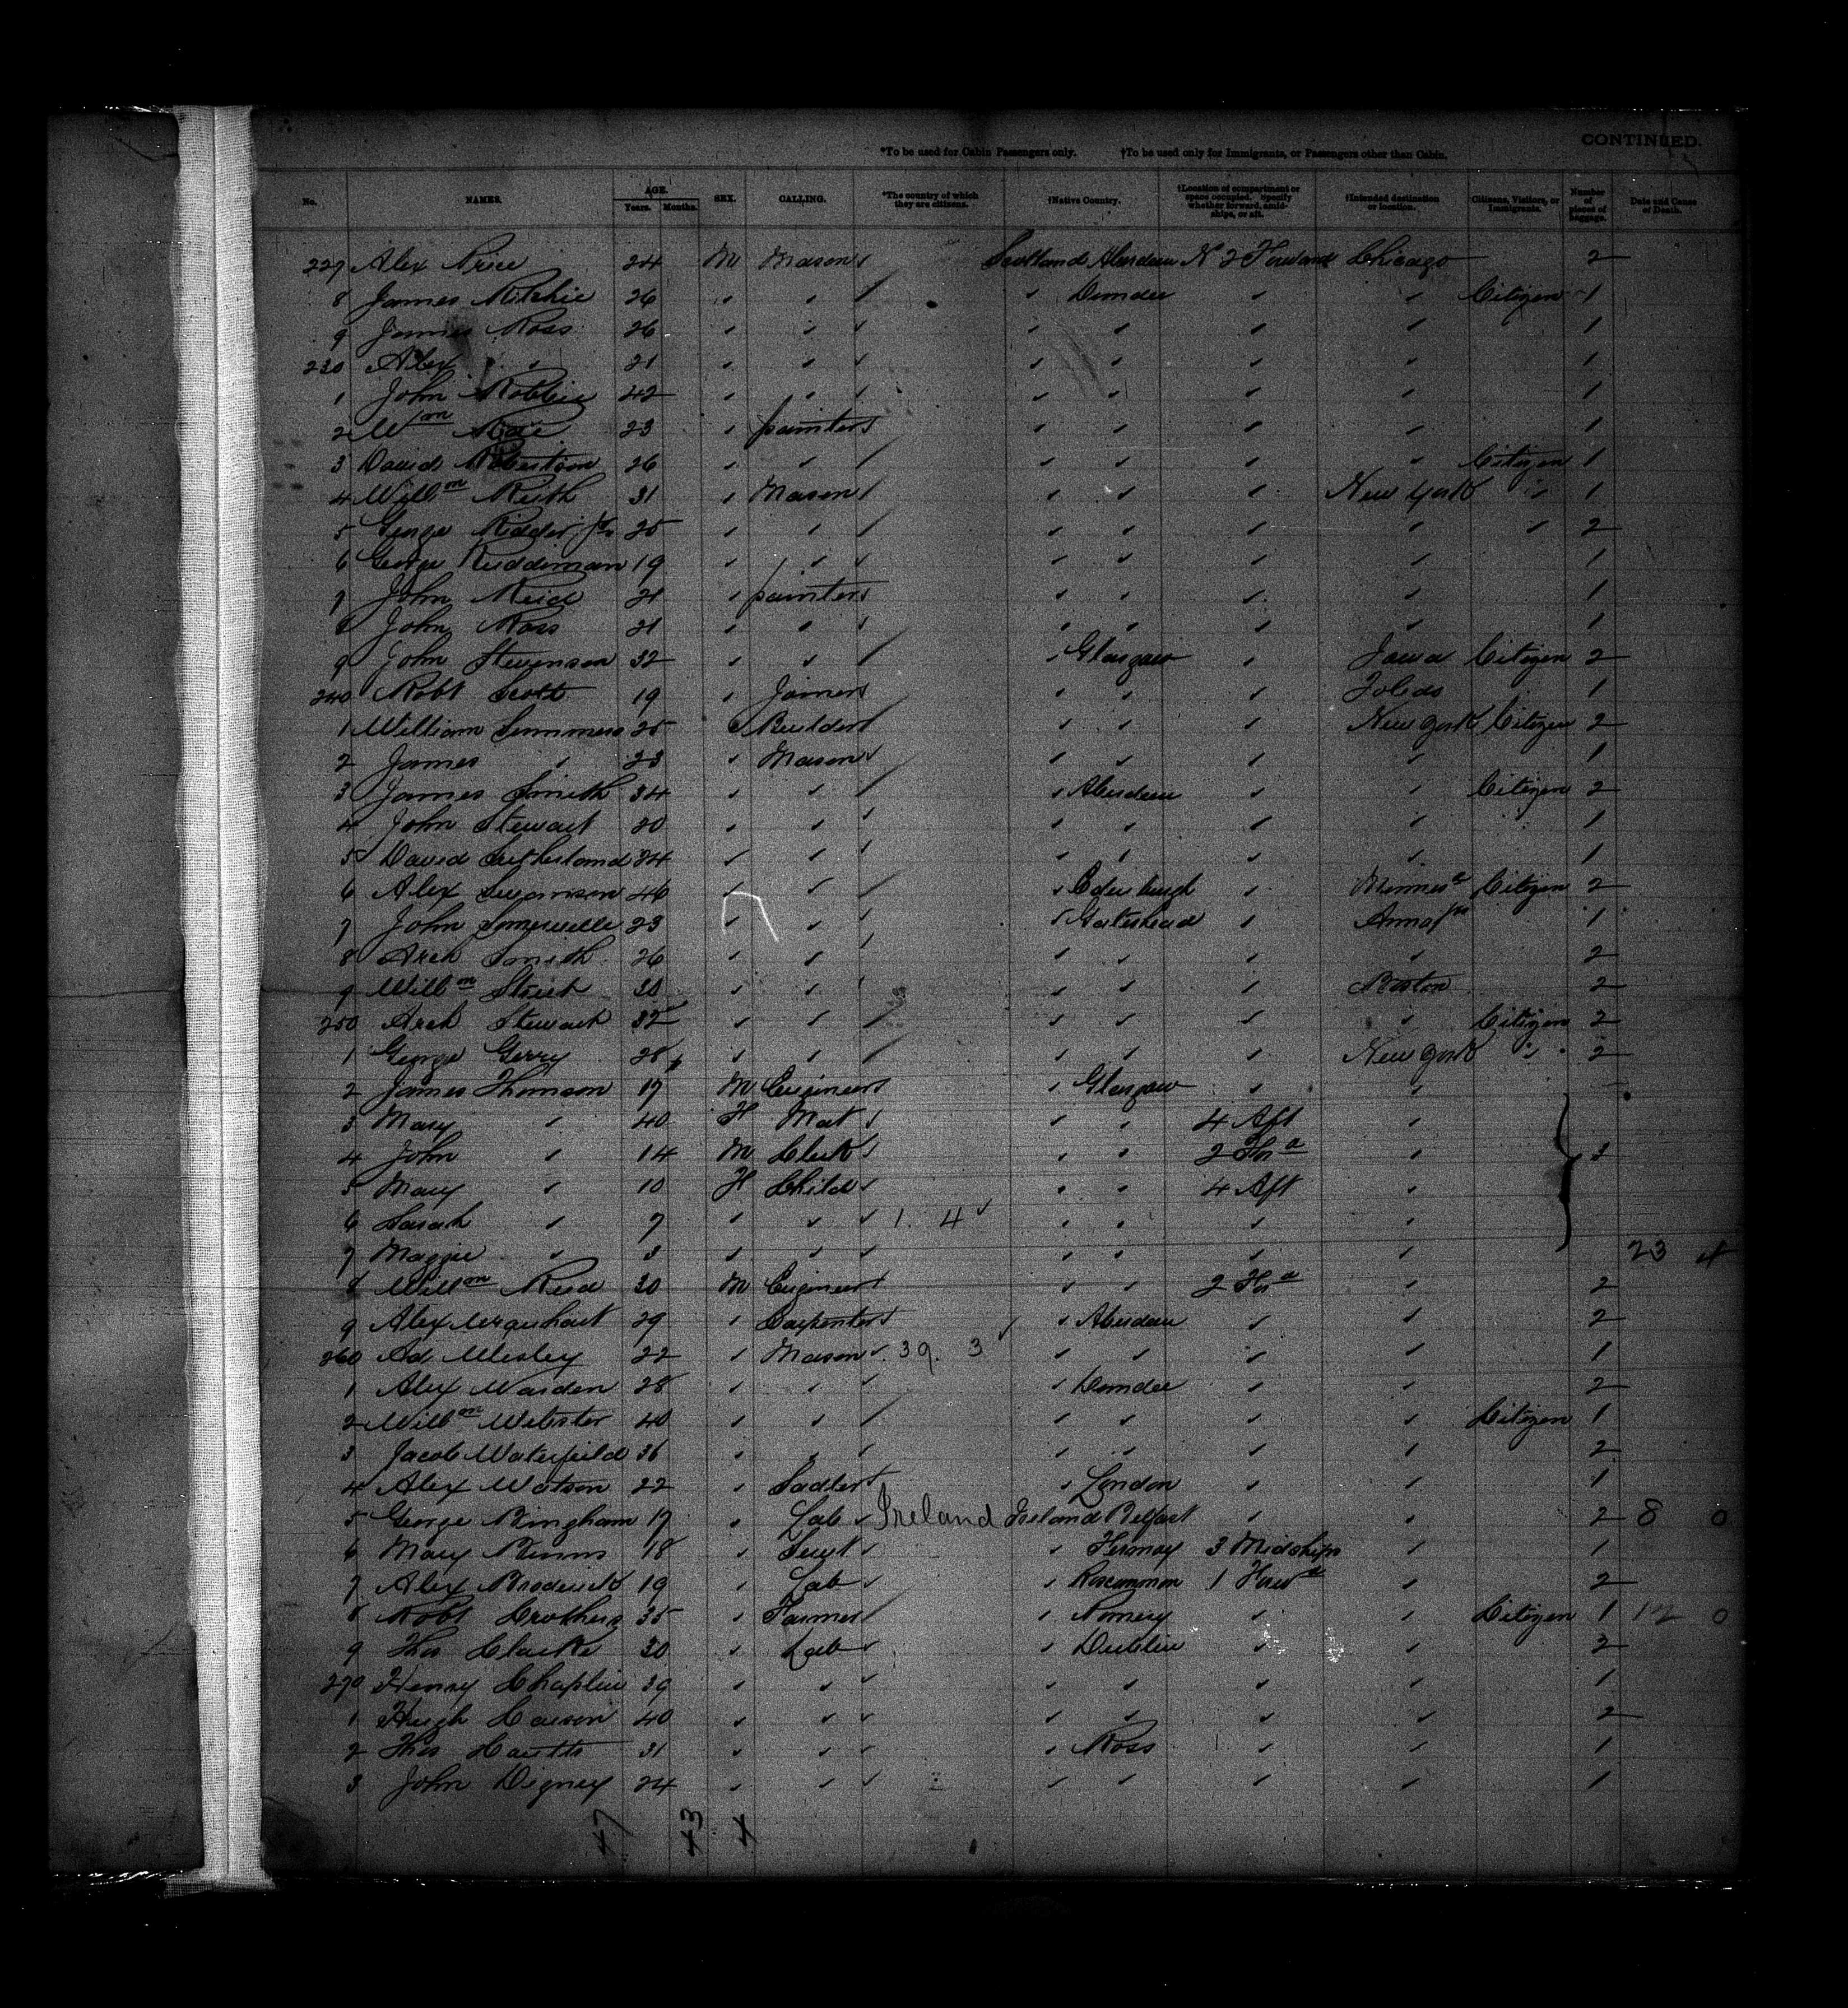 CONTINUED.
*To be used for Cabin Passengers only. †To be used only for Immigrants, or Passengers other than Cabin.
No. NAMES. AGE. Years. Months. SEX. CALLING. *The country of which they are citizens. †Native Country. †Location of compartment or space occupied. Specify whether forward, amidships, or aft. †Intended destination or location. Citizens, Visitors, or Immigrants. Number of pieces of baggage. Date and Cause of Death.
227 Alex Price 24 M Mason ✓ Scotland Aberdeen No 2 Forward Chicago 2
8 James Ritchie 26 ✓ ✓ / ✓ Dundee ✓ ✓ Citizen 1
9 James Ross 26 ✓ ✓ ✓ ✓ ✓ ✓ ✓ 1
230 Alex ✓ 21 ✓ ✓ ✓ ✓ ✓ ✓ ✓ 1
1 John Robbie 42 ✓ ✓ ✓ ✓ ✓ ✓ ✓ 1
2 Wm 23 ✓ painter ✓ ✓ ✓ ✓ ✓ 1
3 David Robertson 26 ✓ ✓ / ✓ ✓ ✓ ✓ Citizen 1
4 Willm Reith 31 ✓ Mason / ✓ ✓ ✓ New York ✓ 1
5 George 25 ✓ ✓ / ✓ ✓ ✓ ✓ ✓ 2
6 George Ruddiman 19 ✓ ✓ ✓ ✓ ✓ ✓ ✓ 1
7 John Reid 21 ✓ painter ✓ ✓ ✓ ✓ ✓ 1
8 John Ross 21 ✓ ✓ ✓ ✓ ✓ ✓ ✓ 1
9 John Stevenson 32 ✓ ✓ / ✓ Glasgow ✓ Iowa Citizen 2
240 Robt Scott 19 ✓ Joiner ✓ ✓ ✓ ✓ Toledo 1
1 William Simmers 25 ✓ Builder / ✓ ✓ ✓ New York Citizen 2
2 James ✓ 23 ✓ Mason ✓ ✓ ✓ ✓ ✓ 1
3 James Smith 34 ✓ ✓ / ✓ Aberdeen ✓ ✓ Citizen 2
4 John Stewart 20 ✓ ✓ ✓ ✓ ✓ ✓ ✓ 1
5 David Sutherland 24 ✓ ✓ ✓ ✓ ✓ ✓ ✓ 1
6 Alex Swanson 46 ✓ ✓ / ✓ Edinburgh ✓ Minnesa Citizen 2
7 John Somerville 23 ✓ ✓ ✓ Gateshead ✓ 1
8 Arch Smith 26 ✓ ✓ ✓ ✓ ✓ ✓ 2
9 Willm 30 ✓ ✓ ✓ ✓ ✓ Boston 2
250 Arch Stewart 32 ✓ ✓ / ✓ ✓ ✓ ✓ Citizen 2
1 George Gerry 28 ✓ ✓ / ✓ ✓ ✓ New York ✓ 2
2 James Thomson 17 M Engineer ✓ ✓ Glasgow ✓ ✓
3 Mary ✓ 40 F Mat ✓ ✓ ✓ 4 Aft ✓
4 John ✓ 14 M Clerk ✓ ✓ ✓ 2 Ford ✓ 3
5 Mary ✓ 10 F Child ✓ ✓ ✓ 4 Aft ✓
6 Sarah ✓ 7 ✓ ✓ ✓ 1. 4 ✓ ✓ ✓ ✓ ✓
7 Maggie ✓ 3 ✓ ✓ ✓ ✓ ✓ ✓ ✓ 23 4
8 Willm Reid 30 M Engineer ✓ ✓ ✓ 2 Ford ✓ 2
9 Alex Urquhart 29 ✓ Carpenter ✓ ✓ Aberdeen ✓ ✓ 2
260 Ad Wesley 22 ✓ Mason ✓ 39. 3 ✓ ✓ ✓ ✓ ✓ 1
1 Alex Warden 28 ✓ ✓ ✓ ✓ Dundee ✓ ✓ 2
2 Willm Webster 40 ✓ ✓ / ✓ ✓ ✓ ✓ Citizen 1
3 Jacob Waterfield 36 ✓ ✓ ✓ ✓ ✓ ✓ ✓ 2
4 Alex Watson 22 ✓ Sadler ✓ ✓ London ✓ ✓ 1
5 George Bingham 17 ✓ Lab ✓ Ireland Ireland Belfast ✓ ✓ 2 8 0
6 Mary Binns 18 ✓ Servt ✓ ✓ Fermay 3 Midships ✓ 1
7 Alex Broderick 19 ✓ Lab ✓ ✓ Roscommon 1 Forwd ✓ 2
8 Robt Crothers 35 ✓ Farmer / ✓ ✓ ✓ Citizen 1 0
9 Thos Clarke 30 ✓ Lab ✓ ✓ Dublin ✓ ✓ 2
270 Henry Chaplin 39 ✓ ✓ ✓ ✓ ✓ ✓ ✓ 1
1 Hugh 40 ✓ ✓ ✓ ✓ ✓ ✓ ✓ 2
2 Thos 31 ✓ ✓ ✓ ✓ Ross ✓ ✓ 1
3 John Digney 24 ✓ ✓ ✓ ✓ ✓ ✓ ✓ 1
47 43 4